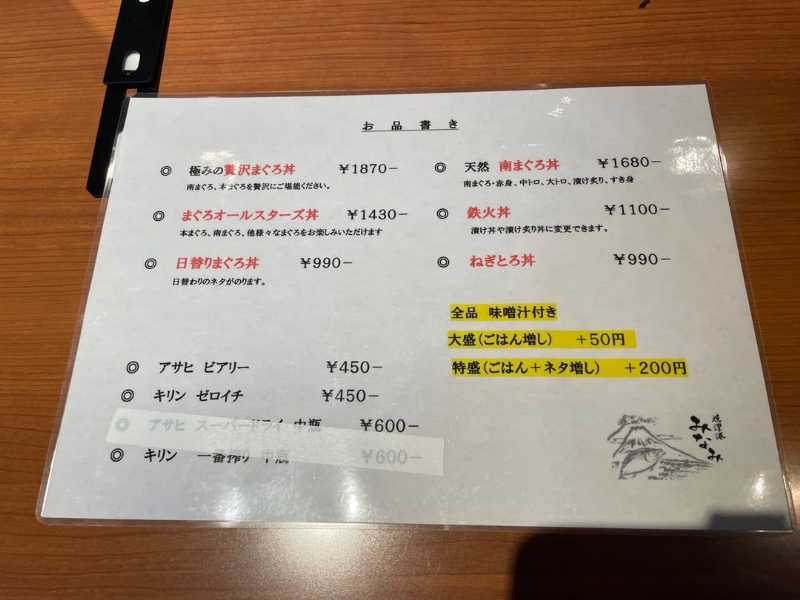 お品書き
◎ 極みの贅沢まぐろ丼 ￥1870−
南まぐろ、本まぐろを贅沢にご堪能ください。
◎ まぐろオールスターズ丼 ￥1430−
本まぐろ、南まぐろ、他様々なまぐろをお楽しみいただけます
◎ 日替りまぐろ丼 ￥990−
日替わりのネタがのります。
◎ 天然 南まぐろ丼 ￥1680−
南まぐろ・赤身、中トロ、大トロ、漬け炙り、すき身
◎ 鉄火丼 ￥1100−
漬け丼や漬け炙り丼に変更できます。
◎ ねぎとろ丼 ￥990−
全品 味噌汁付き
大盛（ごはん増し） ＋50円
特盛（ごはん＋ネタ増し） ＋200円
◎ アサヒ ビアリー ￥450−
◎ キリン ゼロイチ ￥450−
◎ アサヒ スーパードライ 中瓶 ￥600−
◎ キリン 一番搾り 中瓶 ￥600−
焼津港
みなみ